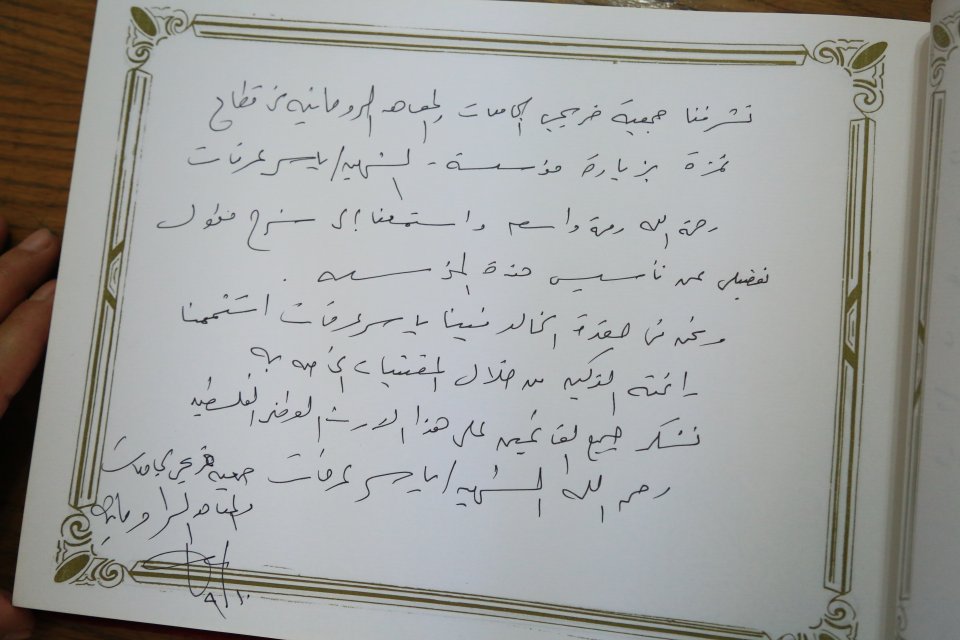 تشرفنا جمعية خريجي الجامعات والمعاهد الرومانية في قطاع
غزة بزيارة مؤسسة - الشهيد/ ياسر عرفات
رحمة الله رحمة واسعه واستمعنا إلى شرح مطول
تفضيلي عن تأسيس هذة المؤسسه .
ونحن في حضرة الخالد فينا ياسر عرفات استنممنا
رائحته الذكيه من خلال المقتنيات الخاصه به
نشكر جميع القائمين على هذا الارث الوطني الفلسطيني
رحم الله الشهيد/ ياسر عرفات
جمعية خريجي الجامعات
والمعاهد الرومانيه
٩/١٠